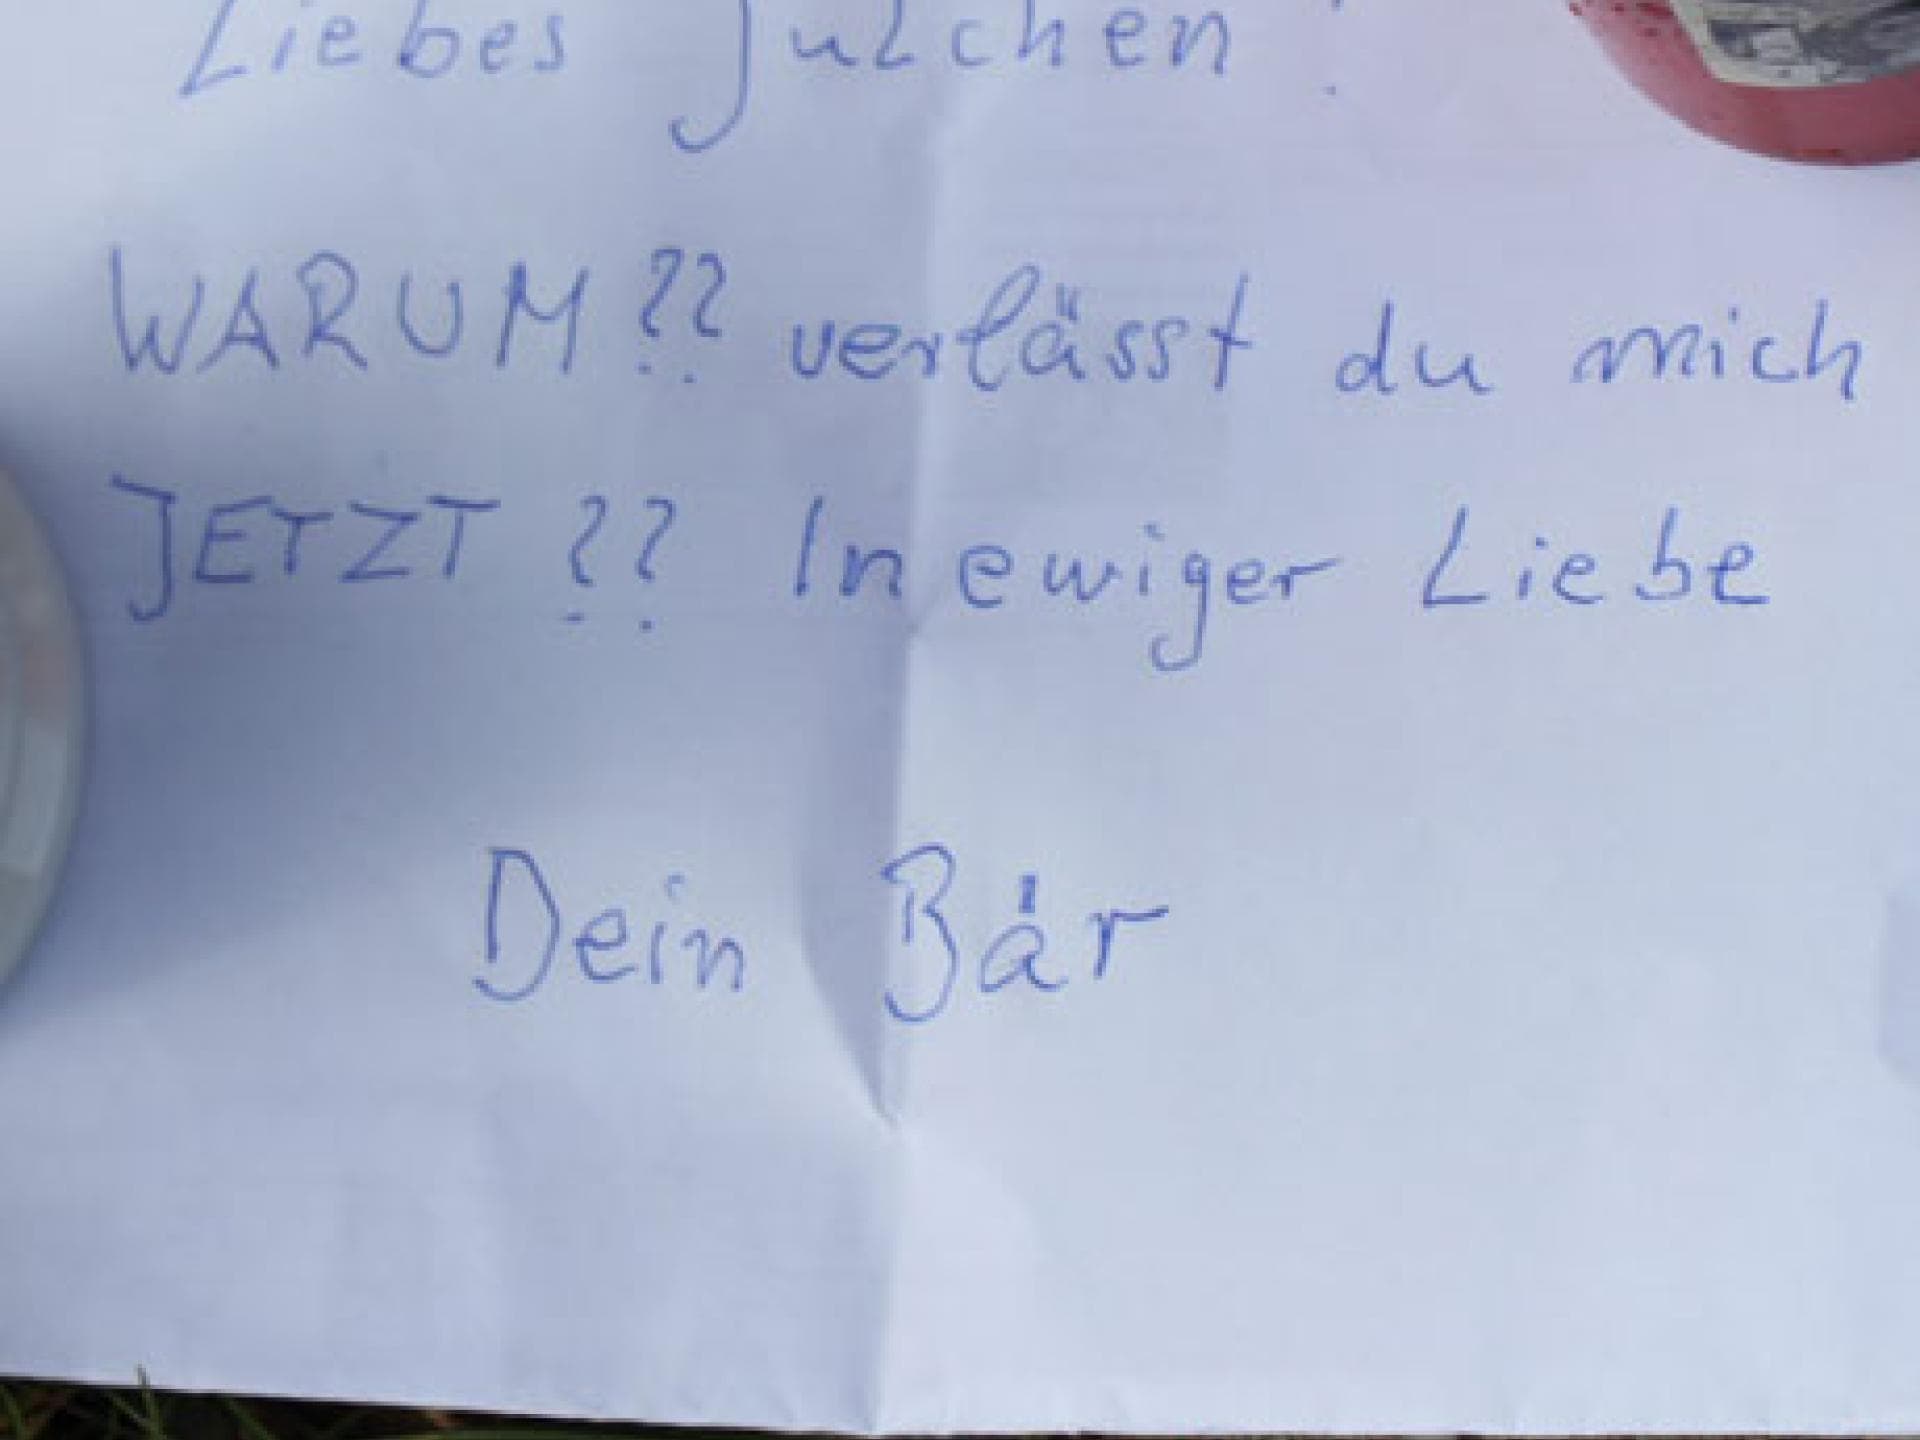 Liebes Julchen!
WARUM?? verlässt du mich
JETZT?? In ewiger Liebe
Dein Bär